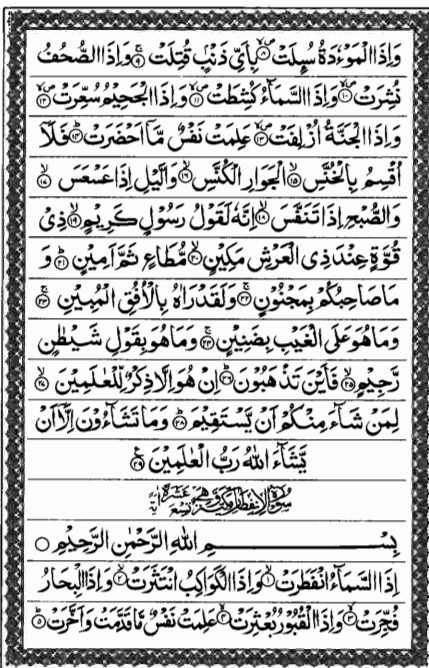 وَاِذَا الْمَوْءٗدَةُ سُىِٕلَتْ ۝۸ بِاَىِّ ذَنْۢبٍ قُتِلَتْ ۝۹ وَاِذَا الصُّحُفُ
نُشِرَتْ ۝۱۰ وَاِذَا السَّمَآءُ كُشِطَتْ ۝۱۱ وَاِذَا الْجَحِيْمُ سُعِّرَتْ ۝۱۲
وَاِذَا الْجَنَّةُ اُزْلِفَتْ ۝۱۳ عَلِمَتْ نَفْسٌ مَّاۤ اَحْضَرَتْ ۝۱۴ فَلَاۤ
اُقْسِمُ بِالْخُنَّسِ ۝۱۵ الْجَوَارِ الْكُنَّسِ ۝۱۶ وَالَّيْلِ اِذَا عَسْعَسَ ۝۱۷
وَالصُّبْحِ اِذَا تَنَفَّسَ ۝۱۸ اِنَّهٗ لَقَوْلُ رَسُوْلٍ كَرِيْمٍ ۝۱۹ ذِيْ
قُوَّةٍ عِنْدَ ذِي الْعَرْشِ مَكِيْنٍ ۝۲۰ مُّطَاعٍ ثَمَّ اَمِيْنٍ ۝۲۱ وَ
مَا صَاحِبُكُمْ بِمَجْنُوْنٍ ۝۲۲ وَلَقَدْ رَاٰهُ بِالْاُفُقِ الْمُبِيْنِ ۝۲۳
وَمَا هُوَ عَلَى الْغَيْبِ بِضَنِيْنٍ ۝۲۴ وَمَا هُوَ بِقَوْلِ شَيْطٰنٍ
رَّجِيْمٍ ۝۲۵ فَاَيْنَ تَذْهَبُوْنَ ۝۲۶ اِنْ هُوَ اِلَّا ذِكْرٌ لِّلْعٰلَمِيْنَ ۝۲۷
لِمَنْ شَآءَ مِنْكُمْ اَنْ يَّسْتَقِيْمَ ۝۲۸ وَمَا تَشَآءُوْنَ اِلَّاۤ اَنْ
يَّشَآءَ اللّٰهُ رَبُّ الْعٰلَمِيْنَ ۝۲۹
سُوْرَةُ الْاِنْفِطَارِ مَكِّيَّةٌ وَّهِيَ تِسْعَ عَشْرَةَ اٰيَةً
بِسْمِ اللّٰهِ الرَّحْمٰنِ الرَّحِيْمِ ۝
اِذَا السَّمَآءُ انْفَطَرَتْ ۝۱ وَاِذَا الْكَوَاكِبُ انْتَثَرَتْ ۝۲ وَاِذَا الْبِحَارُ
فُجِّرَتْ ۝۳ وَاِذَا الْقُبُوْرُ بُعْثِرَتْ ۝۴ عَلِمَتْ نَفْسٌ مَّا قَدَّمَتْ وَاَخَّرَتْ ۝۵